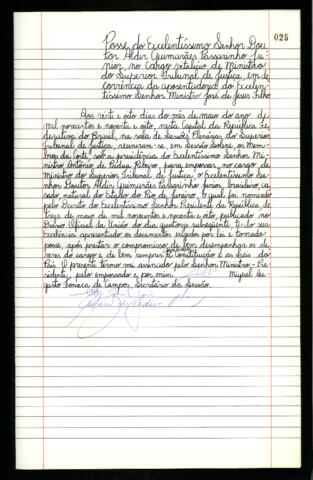 025
Posse do Excelentíssimo Senhor Dou-
tor Aldir Guimarães Passarinho Jú-
nior, no Cargo vitalício de Ministro
do Superior Tribunal de Justiça, em de-
corrência da aposentadoria do Excelen-
tíssimo Senhor Ministro José de Jesus Filho
Aos vinte e oito dias do mês de maio do ano de
mil novecentos e noventa e oito, nesta Capital da República Fe-
derativa do Brasil, na sala de Sessões Plenárias do Superior
Tribunal de Justiça, reuniram-se, em Sessão Solene, os Mem-
bros da Corte, sob a presidência do Excelentíssimo Senhor Mi-
nistro Antônio de Pádua Ribeiro, para empossar, no cargo de
Ministro do Superior Tribunal de Justiça, o Excelentíssimo Se-
nhor Doutor Aldir Guimarães Passarinho Junior, brasileiro, ca-
sado, natural do Estado do Rio de Janeiro, o qual foi nomeado
pelo Decreto do Excelentíssimo Senhor Presidente da República, de
treze de maio de mil novecentos e noventa e oito, publicado no
Diário Oficial da União do dia quatorze subseqüente, tendo sua
Excelência apresentado os documentos exigidos por lei e tomado
posse, após prestar o compromisso de bem desempenhar os de-
veres do cargo e de bem cumprir a Constituição e as Leis do
País. O presente termo vai assinado pelo Senhor Ministro-Pre-
sidente, pelo empossado e por mim Miguel Au-
gusto Fonseca de Campos, Secretário da Sessão.